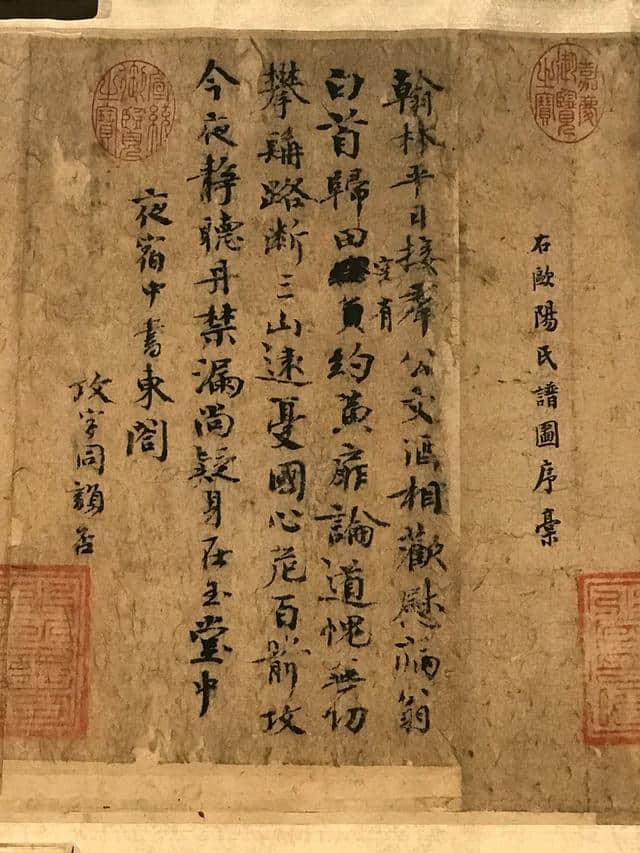 嘉慶御覽之寶
右歐陽氏譜圖序稾
翰林平日接羣公文酒相歡慰病翁
白首歸田空有負約黃扉論道愧無功
攀髯路斷三山遠憂國心危百箭攻
今夜靜聽丹禁漏尚疑身在玉堂中
夜宿中書東閣
攻字同韻否
宣統御覽之寶